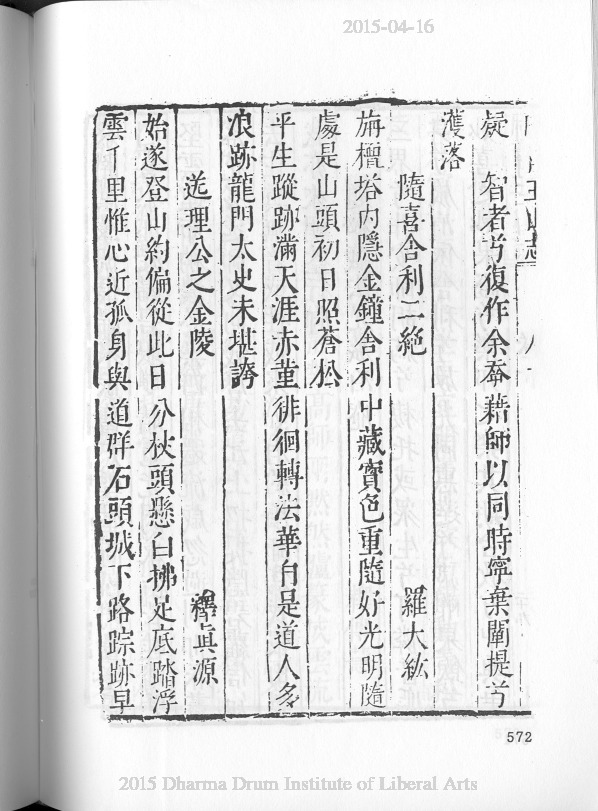 2015-04-16
山志
凝　智者兮復作余忝藉師以同時寧棄闡提兮
濩落
隨喜舍利二絶　羅大紘
旃檀塔内隱金鐘舍利中藏寳色重隨好光明隨
處是山頭初日照蒼松
平生蹤跡滿天涯赤菫徘徊轉法華自是道人多
浪跡龍門太史未堪誇
送理公之金陵　釋真源
始遂登山約偏從此日分杖頭懸白拂足底踏浮
雲千里惟心近孤身與道群石頭城下路踪跡早
572
2015 Dharma Drum Institute of Liberal Arts